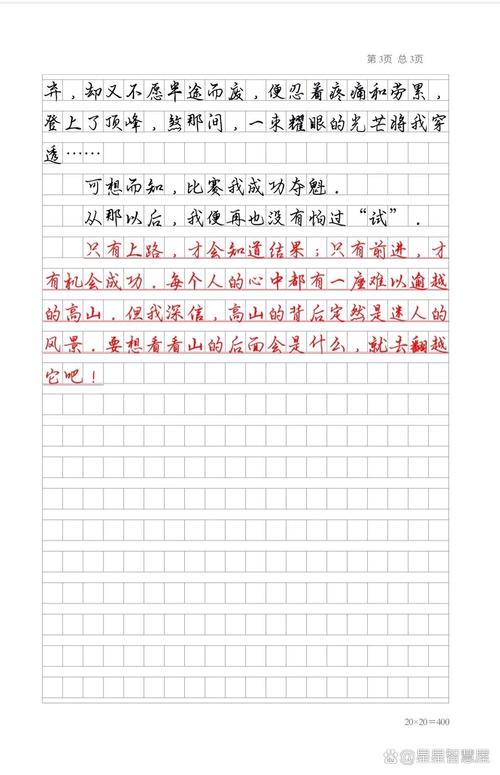 第3页 总3页
弃，却又不愿半途而废，便忍着疼痛和劳累，
登上了顶峰，煞那间，一束耀眼的光芒将我穿
透……
可想而知，比赛我成功夺魁．
从那以后，我便再也没有怕过“试”．
只有上路，才会知道结果；只有前进，才
有机会成功．每个人的心中都有一座难以逾越
的高山．但我深信，高山的背后定然是迷人的
风景．要想看看山的后面会是什么，就去翻越
它吧！
20×20=400
星星智慧屋